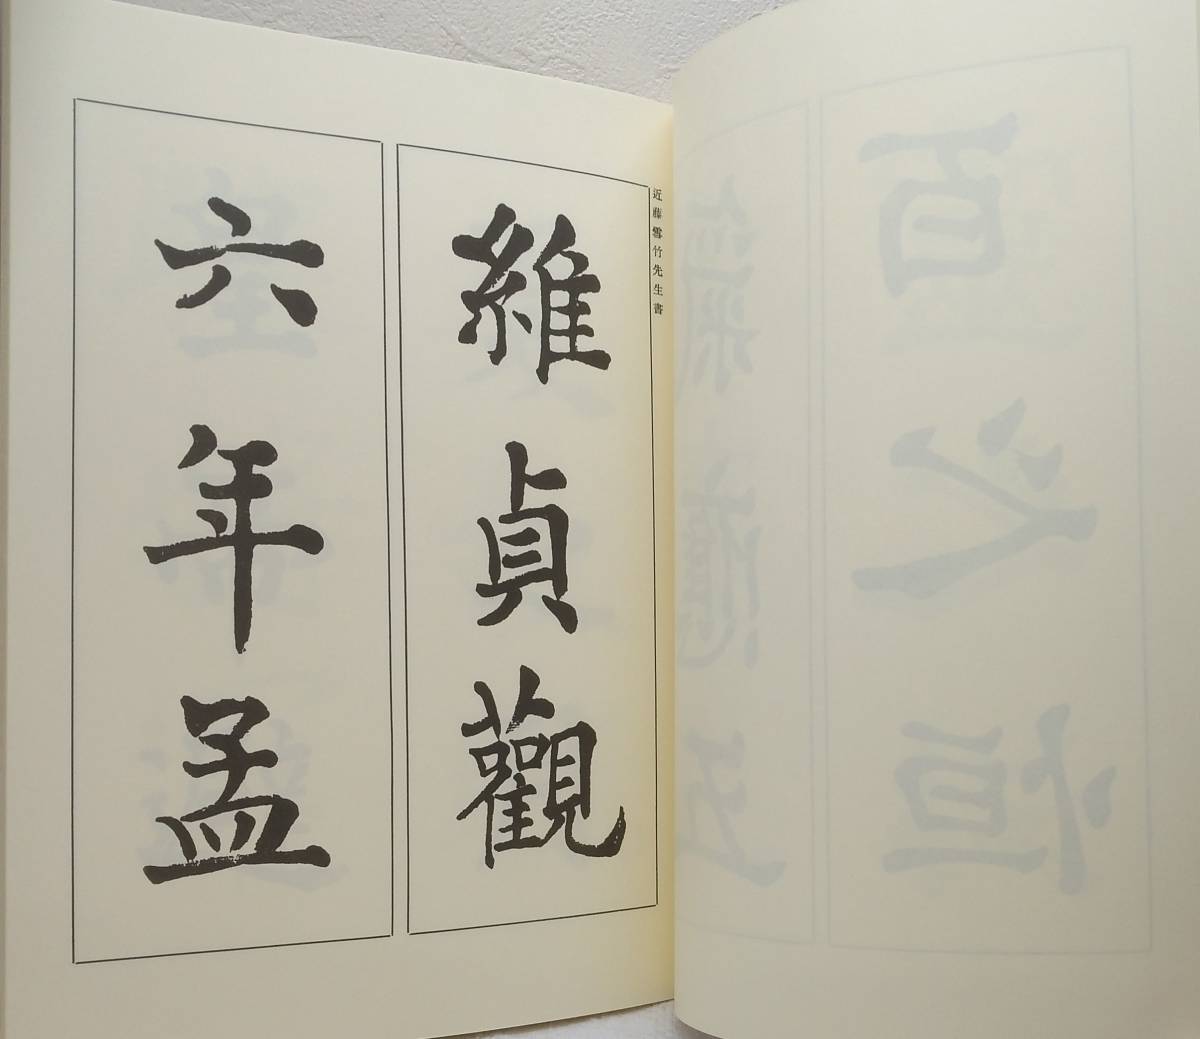 近藤雪竹先生書
維貞觀
六年孟